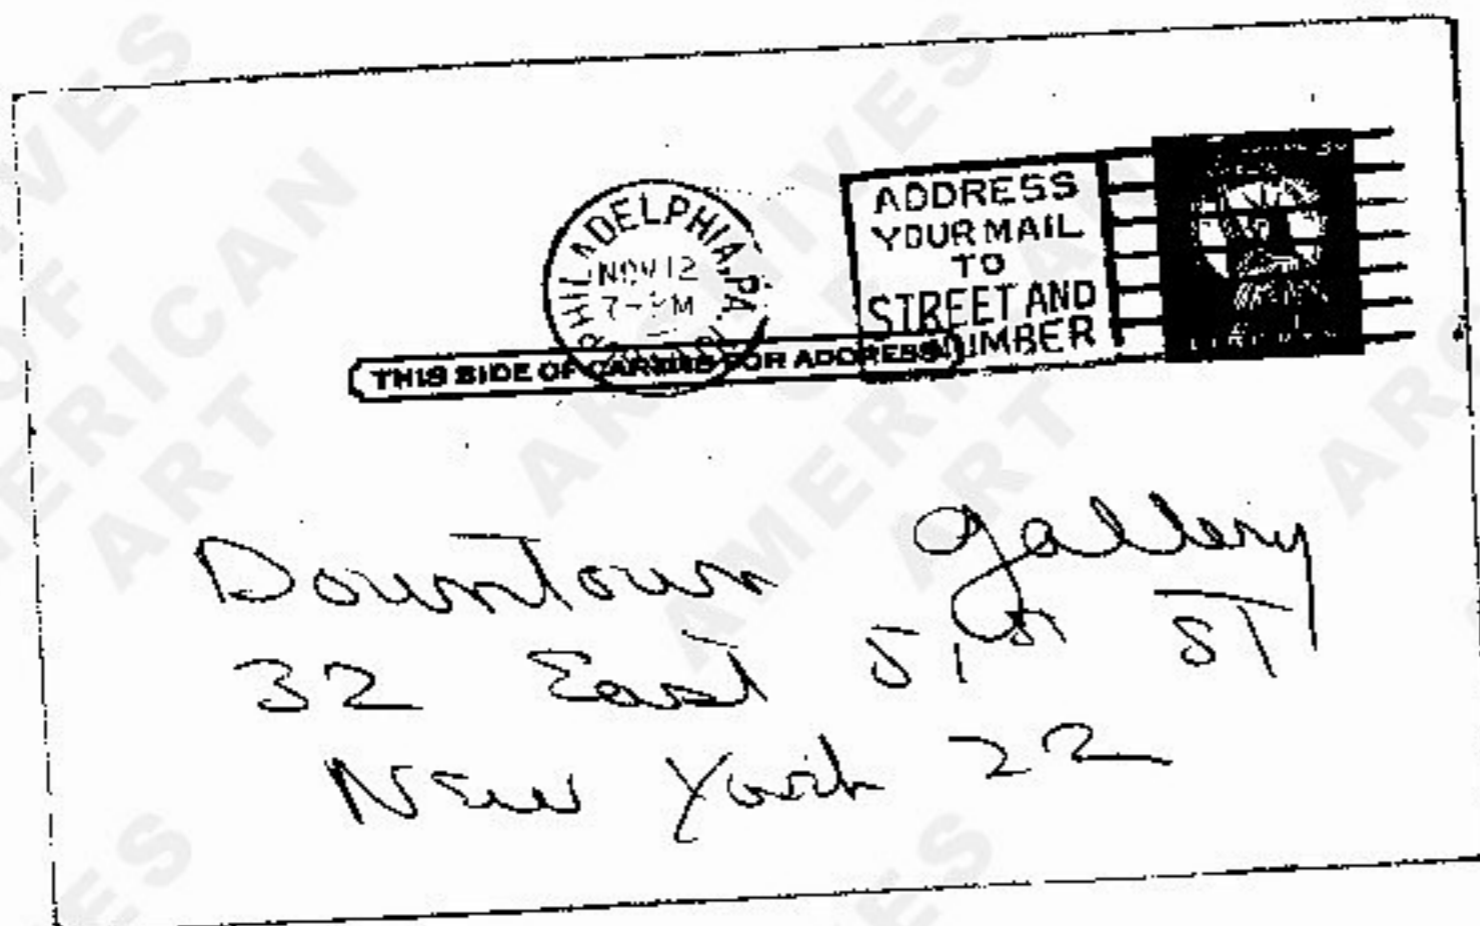 PHILADELPHIA, PA.
NOV 12
7- PM
ADDRESS
YOUR MAIL
TO
STREET AND
NUMBER
THIS SIDE OF CARD IS FOR ADDRESS
Downtown Gallery
32 East 51st ST
New York 22
ARCHIVES
OF
AMERICAN
ART